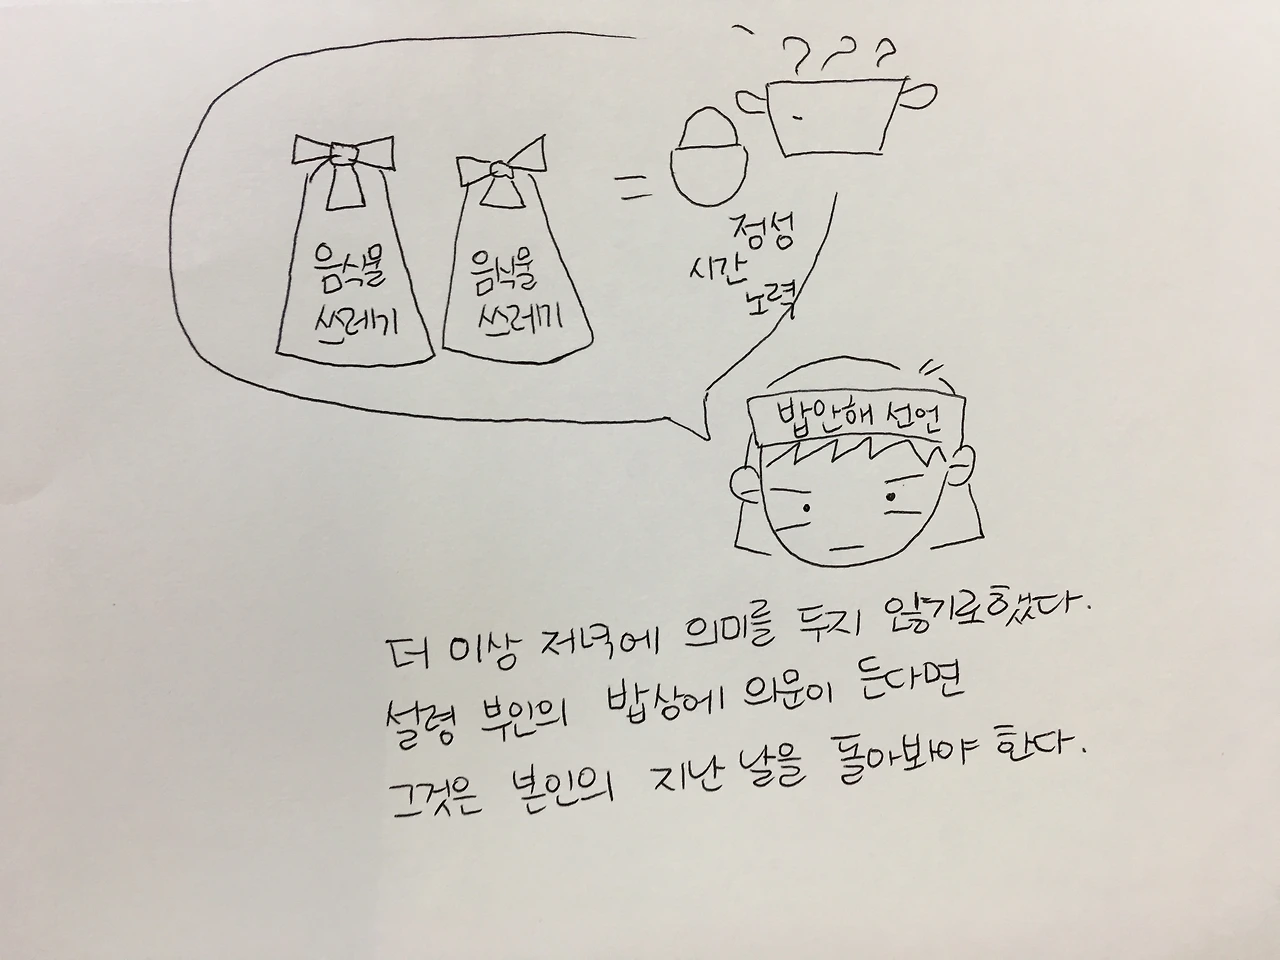 음식물
쓰레기
음식물
쓰레기
=
정성
시간
노력
밥안해 선언
더 이상 저녁에 의미를 두지 않기로했다.
설령 부인의 밥상에 의문이 든다면
그것은 본인의 지난 날을 돌아봐야 한다.